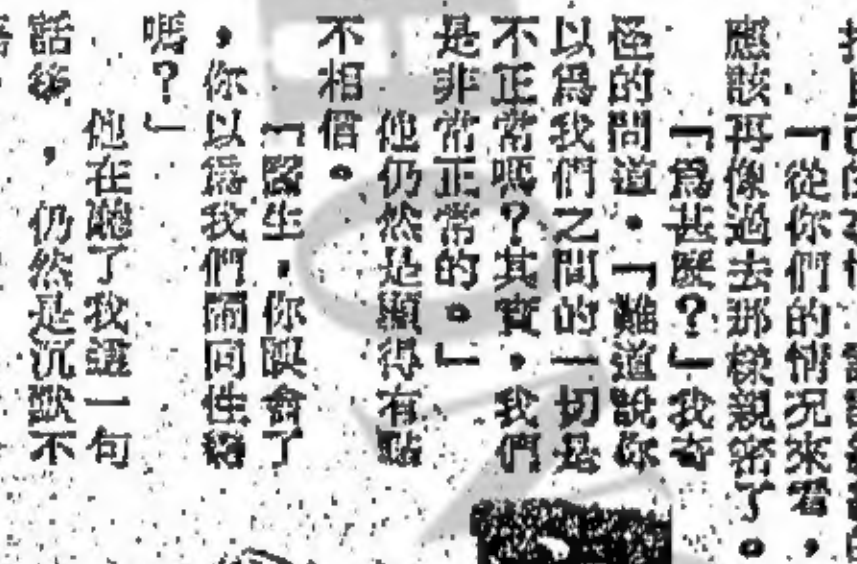 「從你們的情況來看，
應該再像過去那樣親密了。
「爲甚麼？」我奇
怪的問道：「難道說你
以爲我們之間的一切是
不正常嗎？其實，我們
是非常正常的。」
他仍然是顯得有點
不相信。
「醫生，你誤會了
，你以爲我們鬧同性戀
嗎？」
他在聽了我這一句
話後，仍然是沉默不